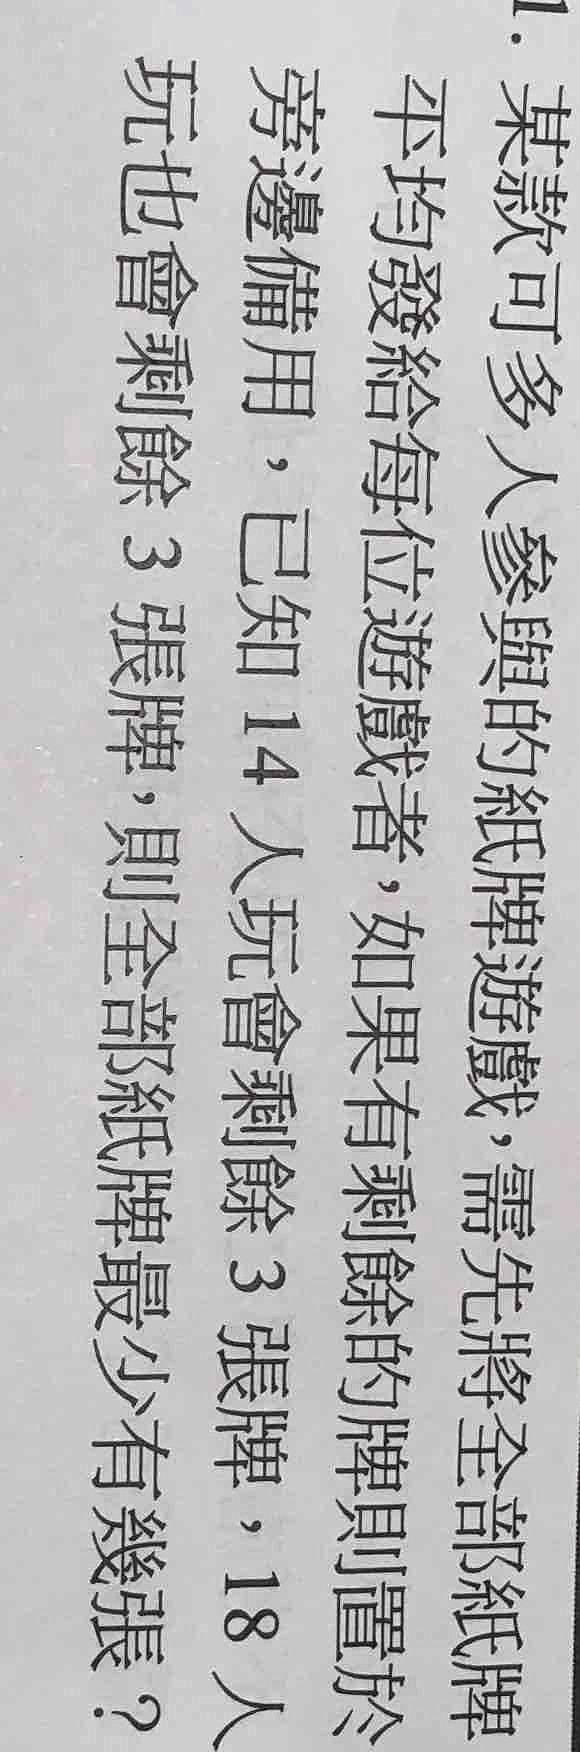 1. 某款可多人參與的紙牌遊戲，需先將全部紙牌
平均發給每位遊戲者，如果有剩餘的牌則置於
旁邊備用，已知 14 人玩會剩餘 3 張牌，18 人
玩也會剩餘 3 張牌，則全部紙牌最少有幾張？